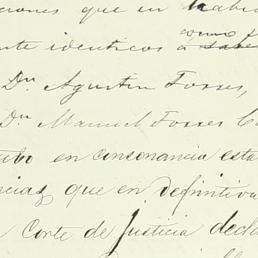 ciones que en habi
nte identicos á
como
Dn Agustin Torres,
Dn Manuel Torres C
tubo en consonancia esta
cias, que en definitiva
Corte de Justicia decla